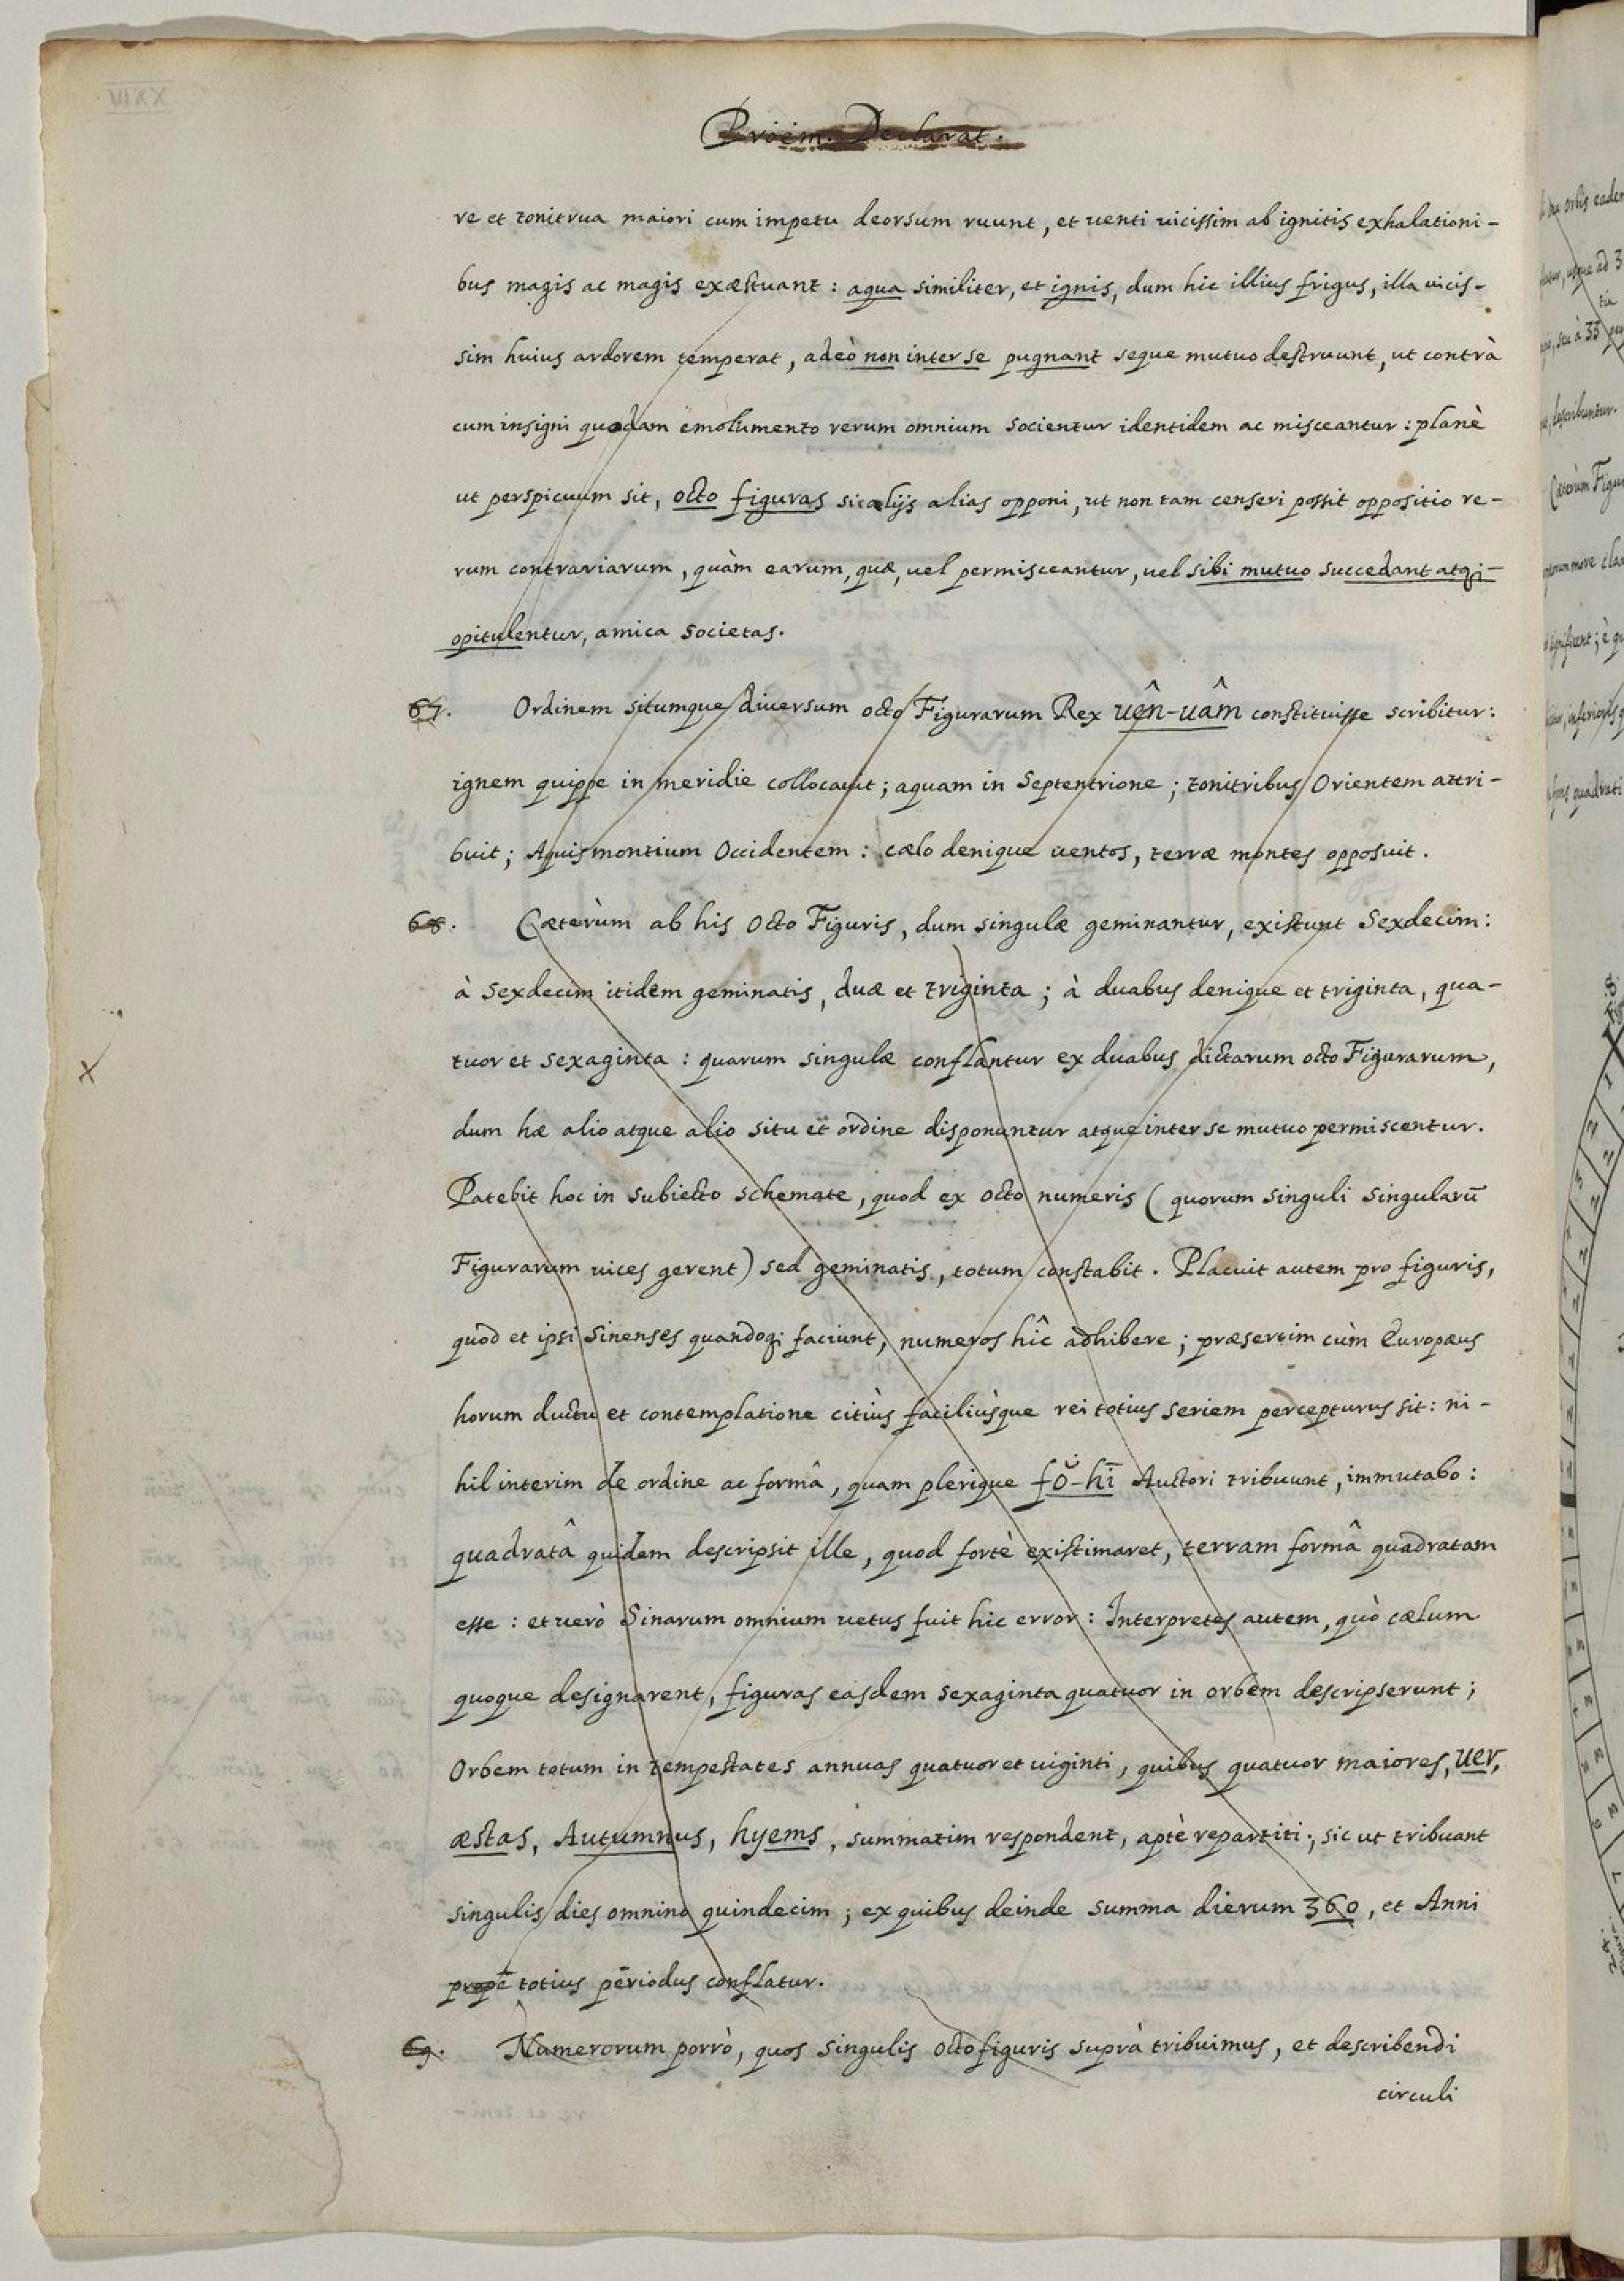 Proëm. Declarat.
re et tonitrua maiori cum impetu deorsum ruunt, et uenti uicissim ab ignitis exhalationi-
bus magis ac magis exæstuant: aqua similiter, et ignis, dum hic illius frigus, illa uicis-
sim huius ardorem temperat, adeò non inter se pugnant seque mutuo destruunt, ut contrà
cum insigni quodam emolumento rerum omnium socientur identidem ac misceantur: planè
ut perspicuum sit, octo figuras sic alijs alias opponi, ut non tam censeri possit oppositio re-
rum contrariarum, quàm earum, quæ, uel permisceantur, uel sibi mutuo succedant atq;
opitulentur, amica societas.
67. Ordinem situmque diuersum octo Figurarum Rex uên-uâm constituisse scribitur:
ignem quippe in meridie collocauit; aquam in Septentrione; tonitribus Orientem attri-
buit; Aquis montium Occidentem: cælo denique uentos, terræ montes opposuit.
68. Cæterùm ab his Octo Figuris, dum singulæ geminantur, existunt Sexdecim:
à Sexdecim itidem geminatis, duæ et triginta; à duabus denique et triginta, qua-
tuor et sexaginta: quarum singulæ conflantur ex duabus dictarum octo Figurarum,
dum hæ alio atque alio situ et ordine disponuntur atque inter se mutuo permiscentur.
Patebit hoc in subiecto schemate, quod ex octo numeris (quorum singuli singularũ
Figurarum uices gerent) sed geminatis, totum constabit. Placuit autem pro figuris,
quod et ipsi Sinenses quandoq; faciunt, numeros hîc adhibere; præsertim cùm Europæus
horum ductu et contemplatione citiùs faciliùsque rei totius seriem percepturus sit: ni-
hil interim de ordine ac formâ, quam plerique fŏ-hī Auctori tribuunt, immutabo:
quadratâ quidem descripsit ille, quod fortè existimaret, terram formâ quadratam
esse: et uerò Sinarum omnium uetus fuit hic error: Interpretes autem, quò cælum
quoque designarent, figuras easdem sexaginta quatuor in orbem descripserunt;
Orbem totum in tempestates annuas quatuor et uiginti, quibus quatuor maiores, uer,
æstas, Autumnus, hyems, summatim respondent, aptè repartiti; sic ut tribuant
singulis dies omnino quindecim; ex quibus deinde summa dierum 360, et Anni
propè totius periodus conflatur.
69. Numerorum porrò, quos singulis octo figuris suprà tribuimus, et describendi
circuli